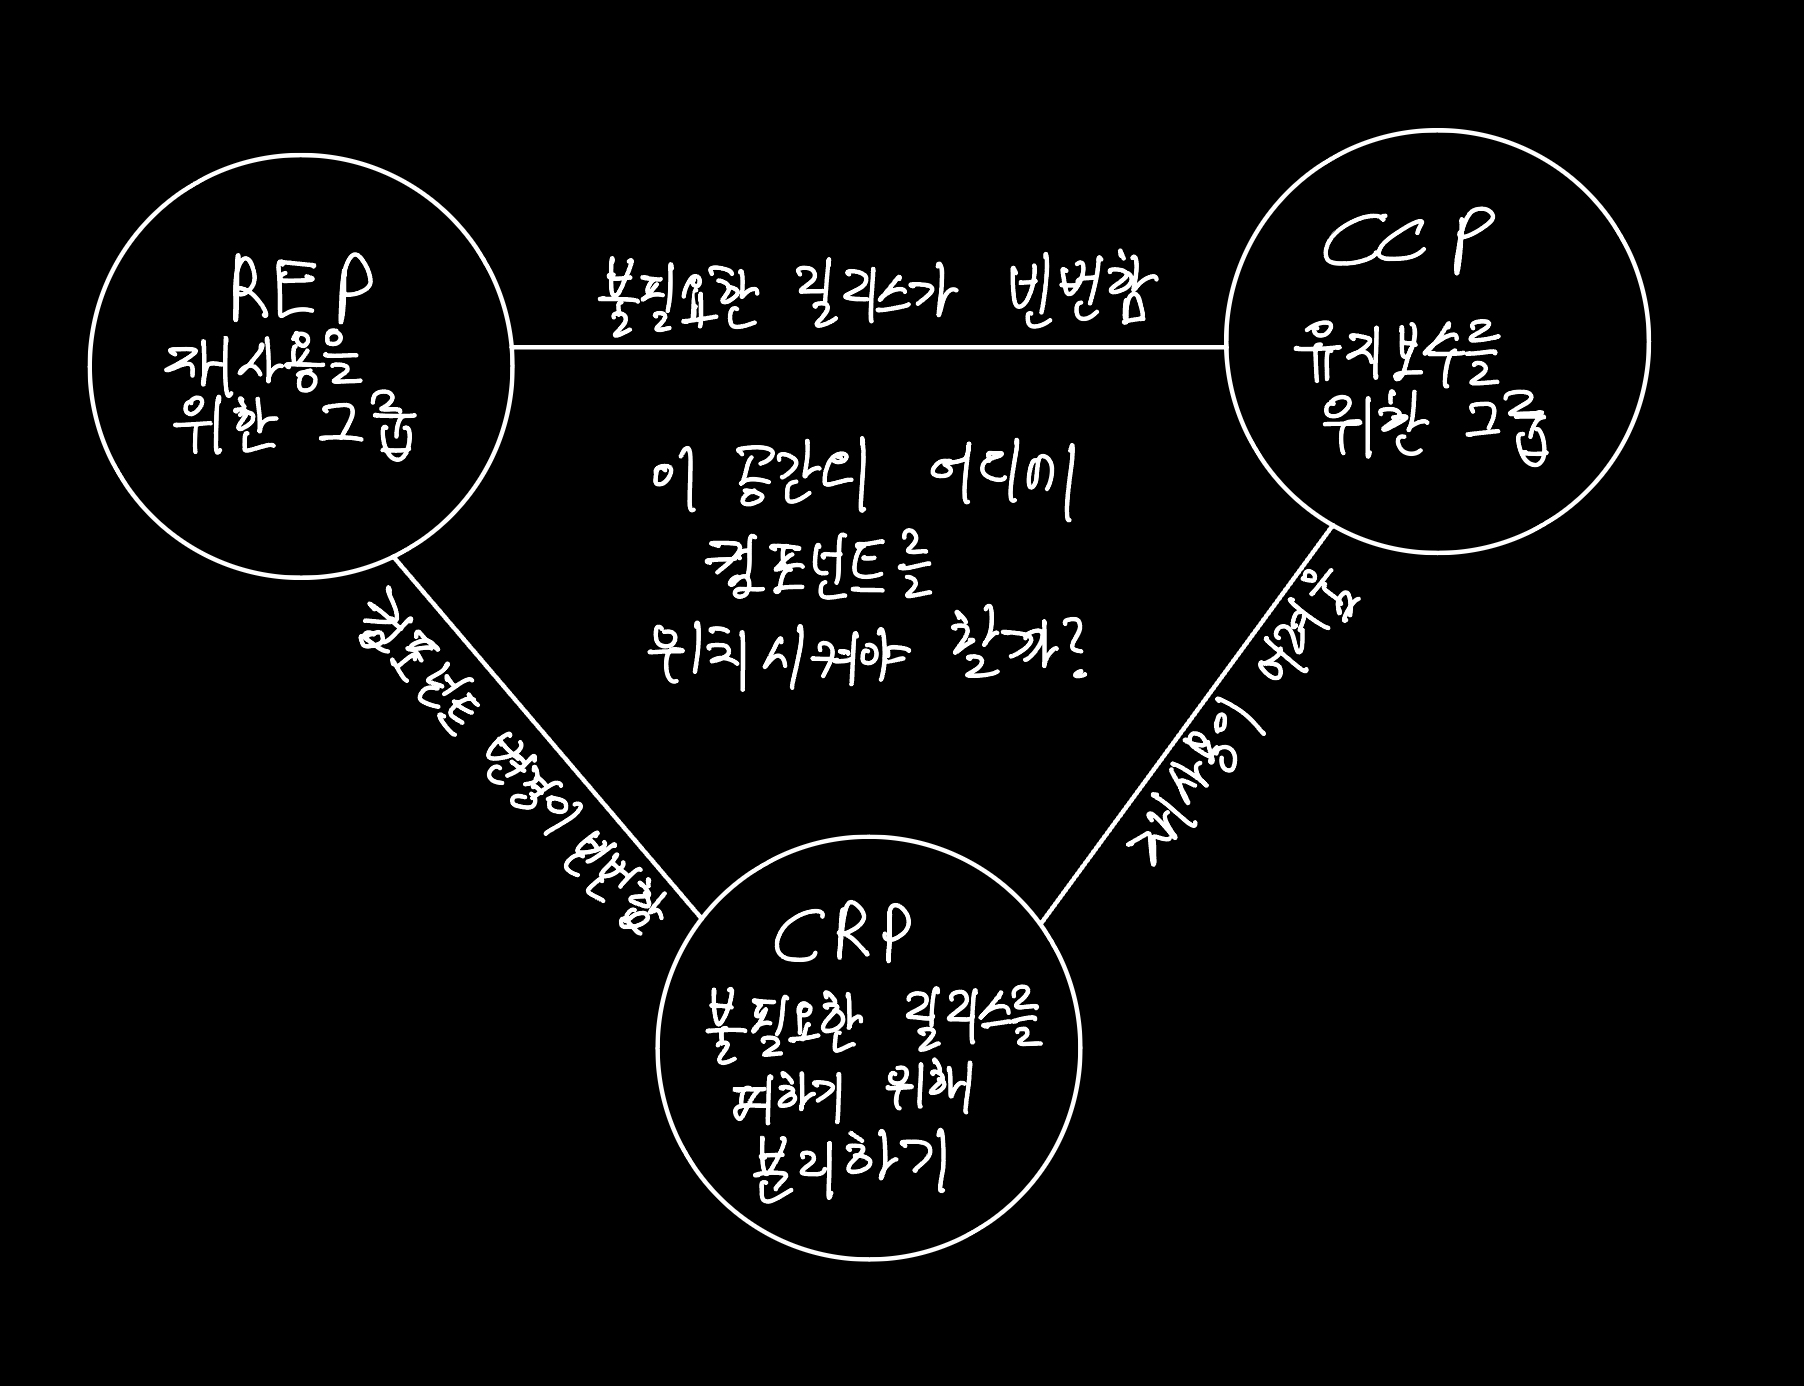 REP
재사용을
위한 그룹
불필요한 릴리스가 빈번함
CCP
유지보수를
위한 그룹
이 공간의 어디에
컴포넌트를
위치시켜야 할까?
컴포넌트 변경이 빈번함
재사용이 어려움
CRP
불필요한 릴리스를
피하기 위해
분리하기